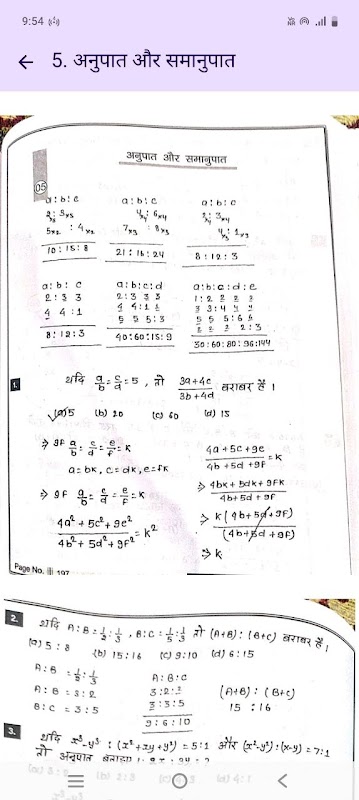 9:54
5. अनुपात और समानुपात
अनुपात और समानुपात
05
a:b:c
2:3×3
5×2 : 4×2
10:15:8
a:b:c
4:6×4
7×3 : 8×3
21:15:24
a:b:c
2:3×4
4:1×3
8:12:3
a:b:c
2:3 3
4 4:1
8:12:3
a:b:c:d
2:3 3 3
4 4:1 1
5 5 5:3
40:60:15:9
a:b:c:d:e
1:2 2 2 2
3 3:4 4 4
5 5 5:6 6
2:3
30:60:80:96:144
1. यदि a/b = c/d = 5, तो 3a+4c / 3b+4d बराबर है।
(a) 5 (b) 20 (c) 60 (d) 15
⇒ If a/b = c/d = e/f = k
a=bk, c=dk, e=fk
⇒ If a/b = c/d = e/f = k
4a²+5c²+9e² / 4b²+5d²+9f² = k²
4a+5c+9e / 4b+5d+9f = k
⇒ 4bk+5dk+9fk / 4b+5d+9f
⇒ k(4b+5d+9f) / (4b+5d+9f)
⇒ k
Page No. 197
2. यदि A:B = 1/2:1/3, B:C = 1/5:1/3 तो (A+B):(B+C) बराबर है।
(a) 5:8 (b) 15:16 (c) 9:10 (d) 6:15
A:B = 1/2:1/3
A:B = 3:2
B:C = 3:5
A:B:C
3:2:2
3:3:5
9:6:10
(A+B):(B+C)
15:16
3. यदि x³-y³:(x²+xy+y²) = 5:1 और (x²-y²):(x-y) = 7:1
तो अनुपात